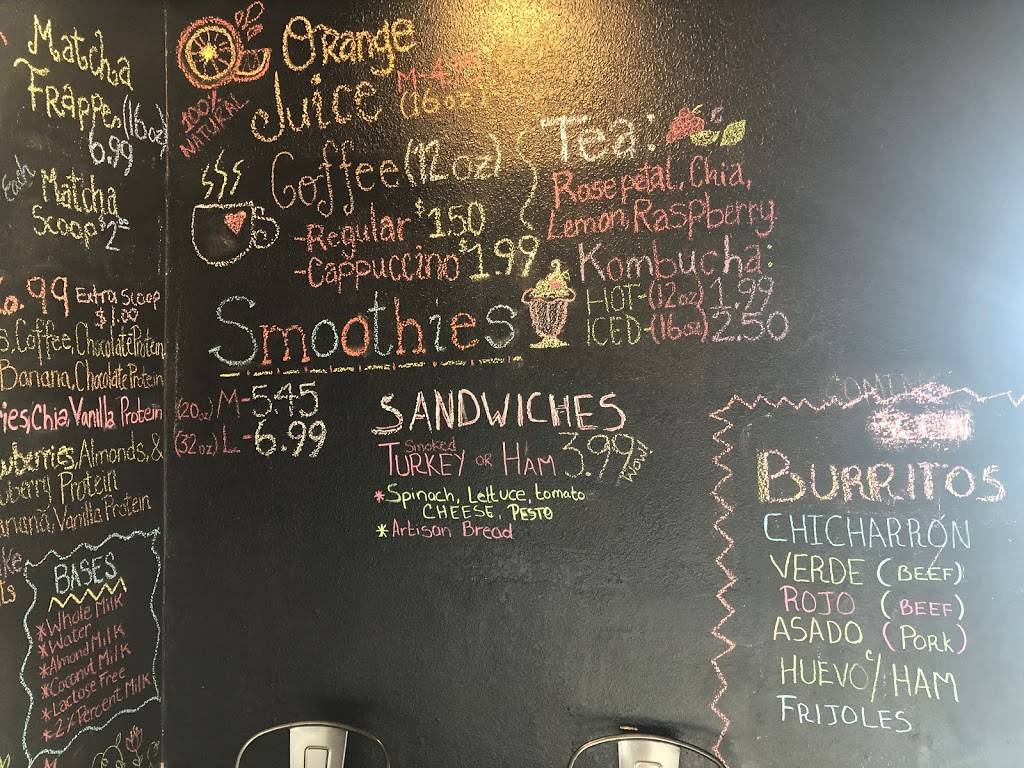 Matcha
Frappes (16oz)
6.99
Each
Matcha
Scoop $2
.99 Extra Scoop
$1.00
Coffee, Chocolate Protein
Banana, Chocolate Protein
Chia Vanilla Protein
Almonds, &
Protein
Vanilla Protein
BASES
*Whole Milk
*Water
*Almond Milk
*Coconut Milk
*Lactose Free
*2% Percent Milk
100%
NATURAL
Orange
Juice M-
(16oz)
Coffee (12oz)
-Regular $1.50
-Cappuccino $1.99
Tea:
Rose petal, Chia,
Lemon Raspberry
Kombucha:
HOT-(12oz) 1.99
ICED-(16oz) 2.50
Smoothies
(20oz) M-5.45
(32oz) L-6.99
SANDWICHES
Smoked
TURKEY OR HAM 3.99
*Spinach, Lettuce, tomato
CHEESE, PESTO
*Artisan Bread
BURRITOS
CHICHARRÓN
VERDE (BEEF)
ROJO (BEEF)
ASADO (Pork)
HUEVO c/ HAM
FRIJOLES